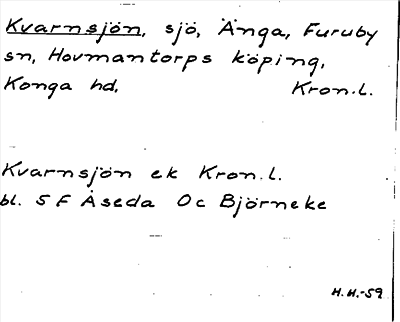 Kvarnsjön, sjö, Änga, Furuby
sn, Hovmantorps köping,
Konga hd. Kron.l.
Kvarnsjön ek Kron.l.
bl. 5 F Åseda Oc Björneke
H.H.-59